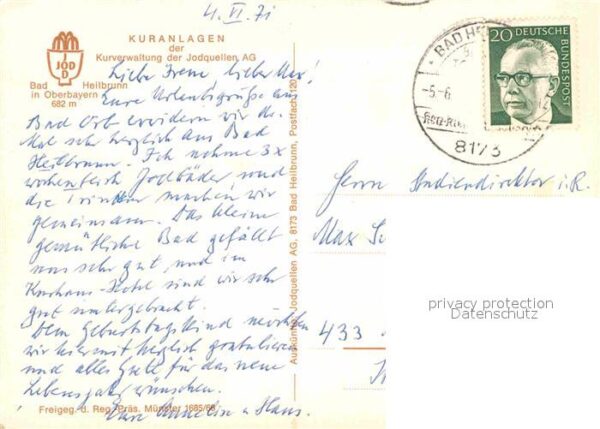 4. VI. 71
KURANLAGEN
der
Kurverwaltung der Jodquellen AG
JOD
Bad Heilbrunn
in Oberbayern
682 m
Liebe Irene, lieber Max!
Eure Urlaubsgrüße aus
Bad Orb erwidern wir die-
mal sehr herzlich aus Bad
Heilbrunn. Ich nehme 3x
wöchentlich Jodbäder und
die Trinkkur machen wir
gemeinsam. Das kleine
gemütliche Bad gefällt
uns sehr gut, und im
Kurhaus-Hotel sind wir sehr
gut untergebracht.
Dem Geburtstagskind möchten
wir hiermit herzlich gratulieren
und alles Gute für das neue
Lebensjahr wünschen.
Eure Annelise u. Hans.
Freigeg. d. Reg. Präs. Münster 1685/66
Auskünfte: Jodquellen AG, 8173 Bad Heilbrunn, Postfach 120
BAD HE
-5.-6
8173
20 DEUTSCHE
BUNDESPOST
Herrn Studiendirektor i.R.
Max
433
privacy protection
Datenschutz